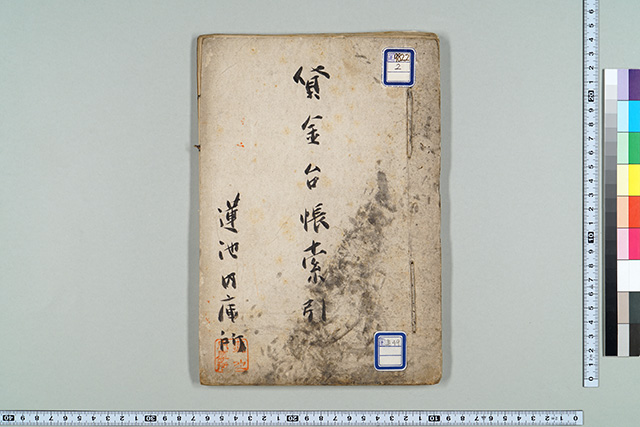 貸金台帳索引
蓮池内庫所
2